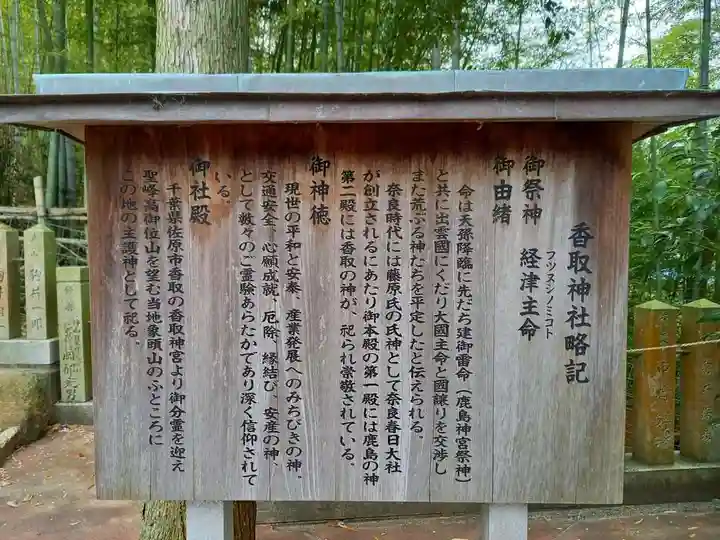 香取神社略記
御祭神
フツヌシノミコト
経津主命
御由緒
命は天孫降臨に先だち建御雷命(鹿島神宮祭神)
と共に出雲國にくだり大國主命と國譲りを交渉し
また荒ぶる神たちを平定したと伝えられる。
奈良時代には藤原氏の氏神として奈良春日大社
が創立されるにあたり御本殿の第一殿には鹿島の神
第二殿には香取の神が、祀られ崇敬されている。
御神徳
現世の平和と安泰、産業発展へのみちびきの神、
交通安全、心願成就、厄除、縁結び、安産の神、
として数々のご霊験あらたかであり深く信仰されて
いる。
御社殿
千葉県佐原市香取の香取神宮より御分霊を迎え
聖峰高御位山を望む当地象頭山のふところに
この地の主護神として祀る。